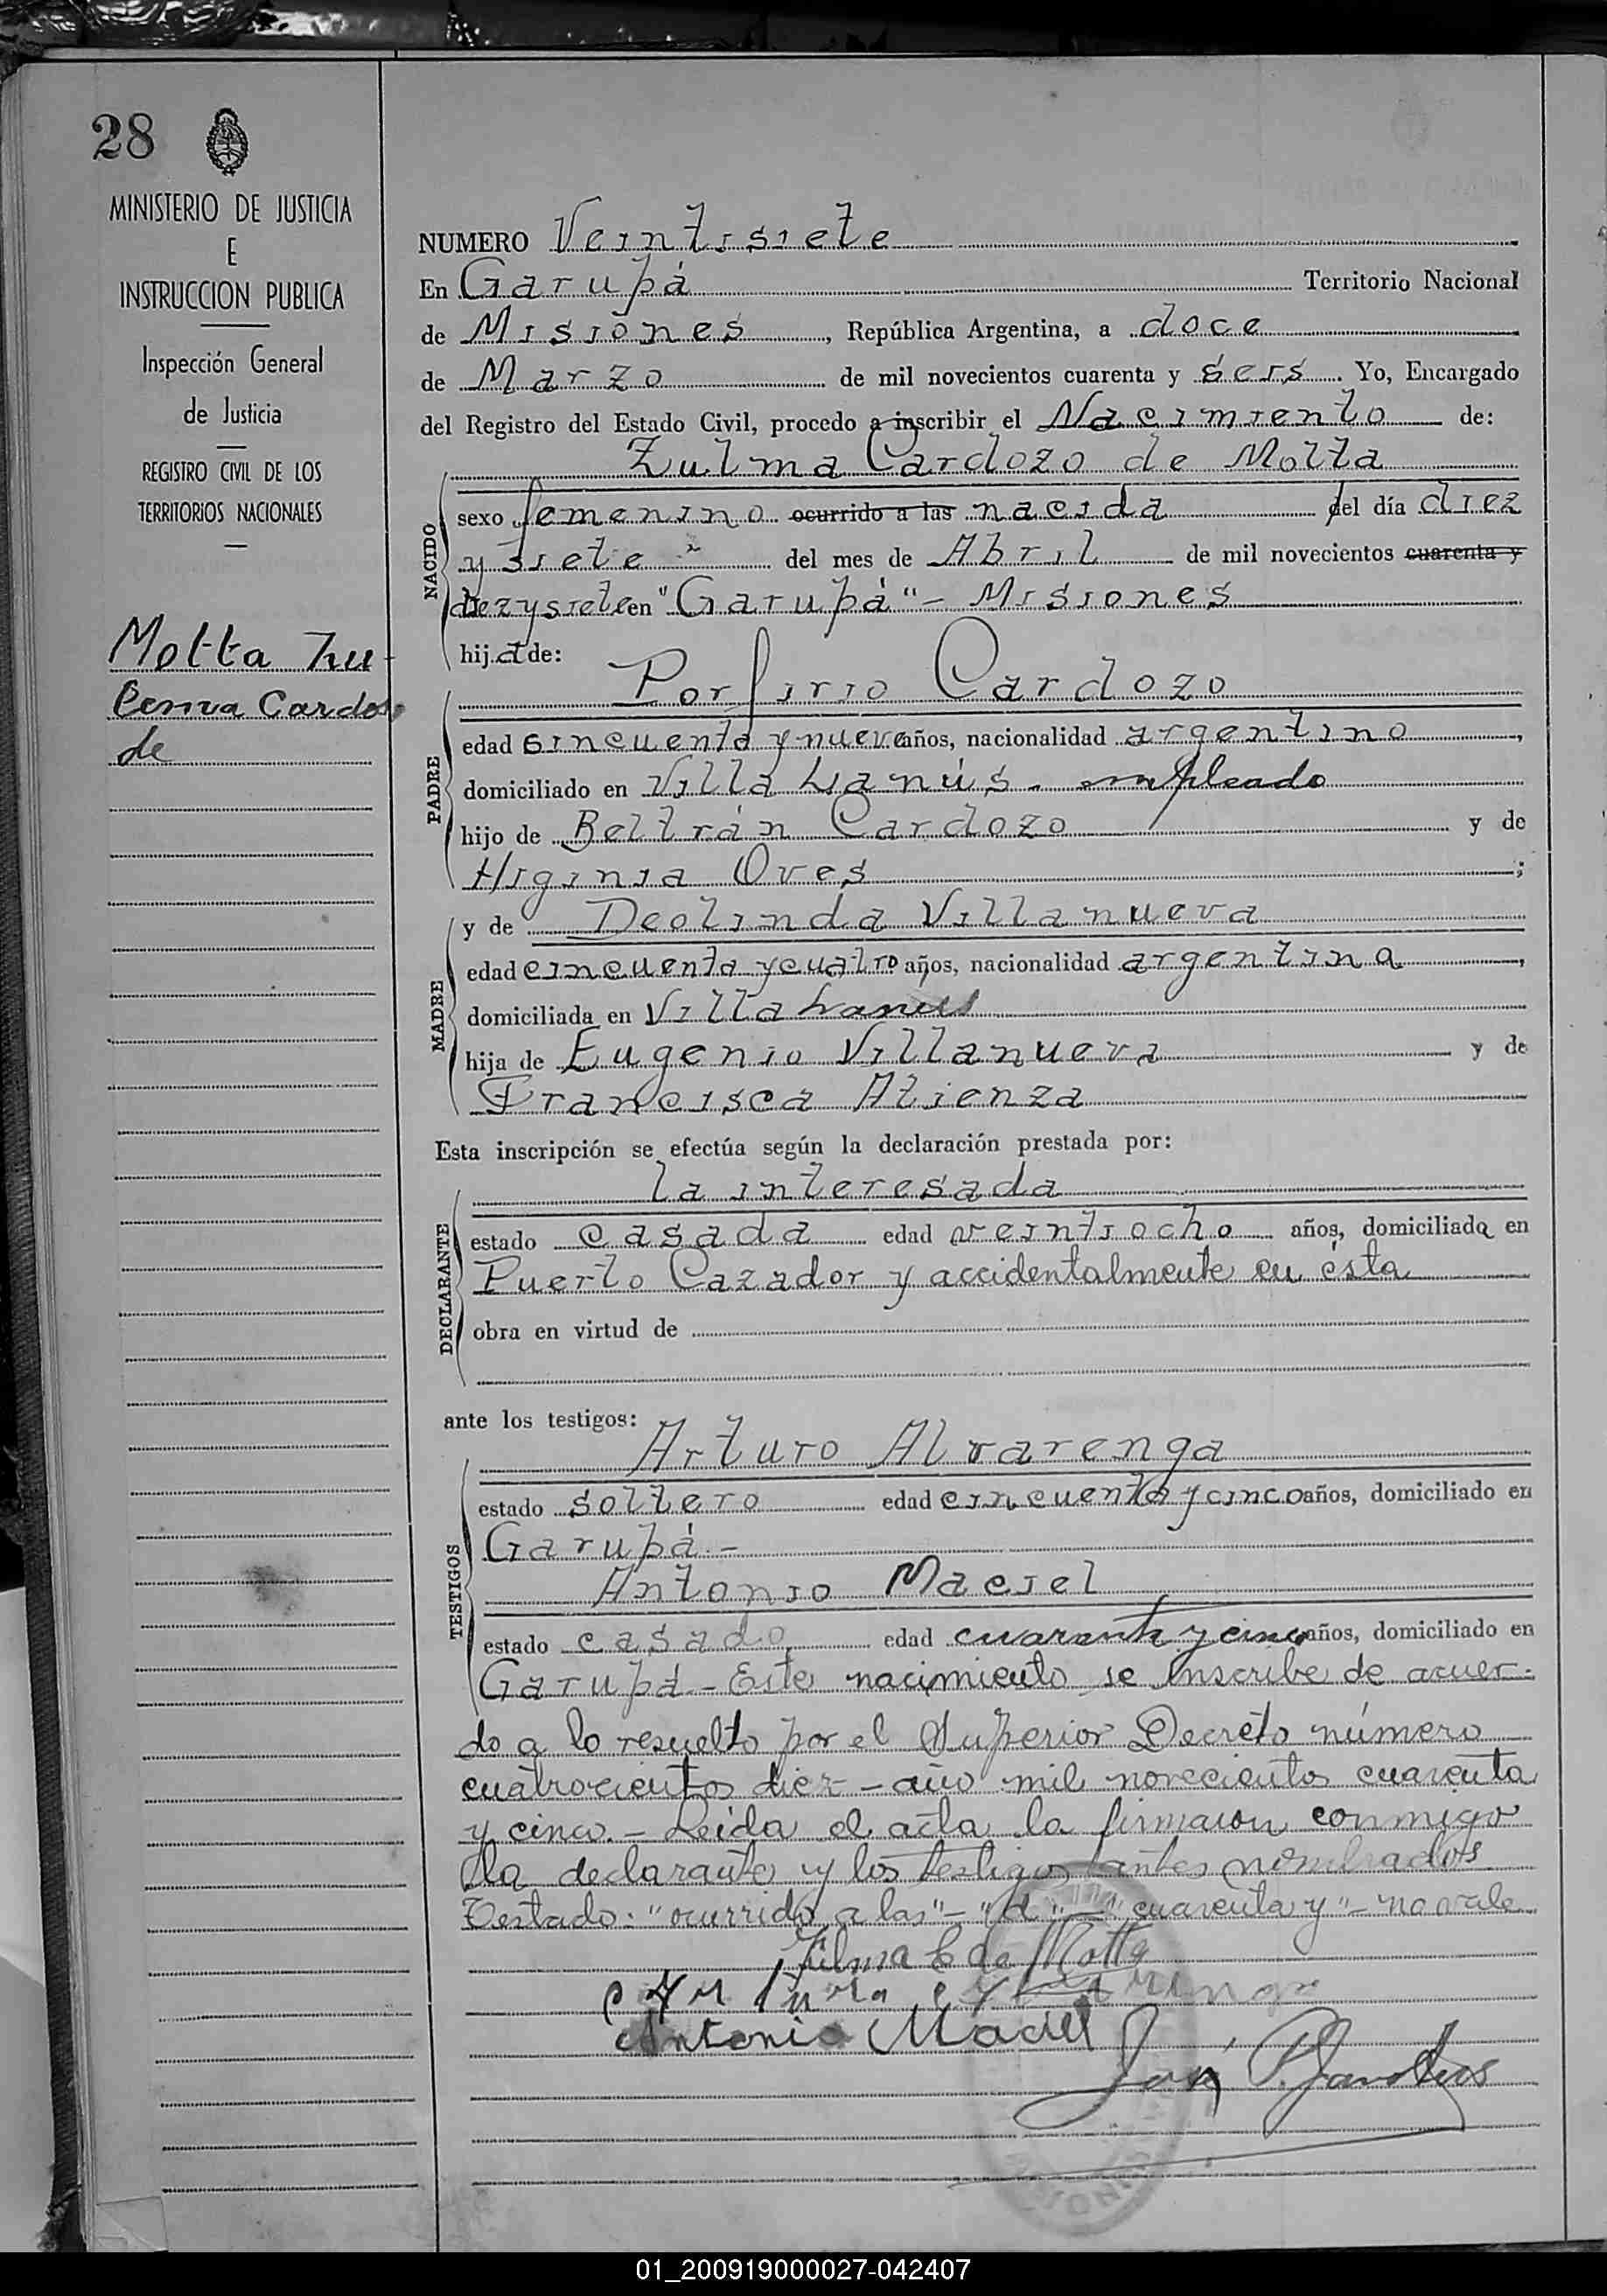 28
MINISTERIO DE JUSTICIA
E
INSTRUCCION PUBLICA
Inspección General
de Justicia
REGISTRO CIVIL DE LOS
TERRITORIOS NACIONALES
Motta
Cardozo
de
NUMERO Veintisiete
En Garupá Territorio Nacional
de Misiones, República Argentina, a doce
de Marzo de mil novecientos cuarenta y seis. Yo, Encargado
del Registro del Estado Civil, procedo a inscribir el Nacimiento de:
Zulma Cardozo de Motta
NACIDO
sexo femenino ocurrido a las nacida del día diez
y siete del mes de Abril de mil novecientos cuarenta y
diezysiete en "Garupá" - Misiones
hija de:
Porfirio Cardozo
PADRE
edad cincuenta y nueve años, nacionalidad argentino,
domiciliado en Villa Lanús - empleado
hijo de Beltrán Cardozo y de
Higinia Oves;
y de Deolinda Villanueva
MADRE
edad cincuenta y cuatro años, nacionalidad argentina,
domiciliada en Villa Lanus
hija de Eugenio Villanueva y de
Francisca Atienza
Esta inscripción se efectúa según la declaración prestada por:
la interesada
DECLARANTE
estado casada edad veintiocho años, domiciliada en
Puerto Cazador y accidentalmente en ésta
obra en virtud de
ante los testigos:
Arturo Alvarenga
TESTIGOS
estado soltero edad cincuenta y cinco años, domiciliado en
Garupá -
Antonio Maciel
estado casado edad cuarenta y cinco años, domiciliado en
Garupá - Este nacimiento se inscribe de acuer-
do a lo resuelto por el Superior Decreto número
cuatrocientos diez - año mil novecientos cuarenta
y cinco. - Leida el acta la firmaron conmigo
la declarante y los testigos antes nombrados
Testado: "ocurrido a las" - "d" - "cuarenta y" - no vale
Zulma C de Motta
Antonio Maciel
01_200919000027-042407